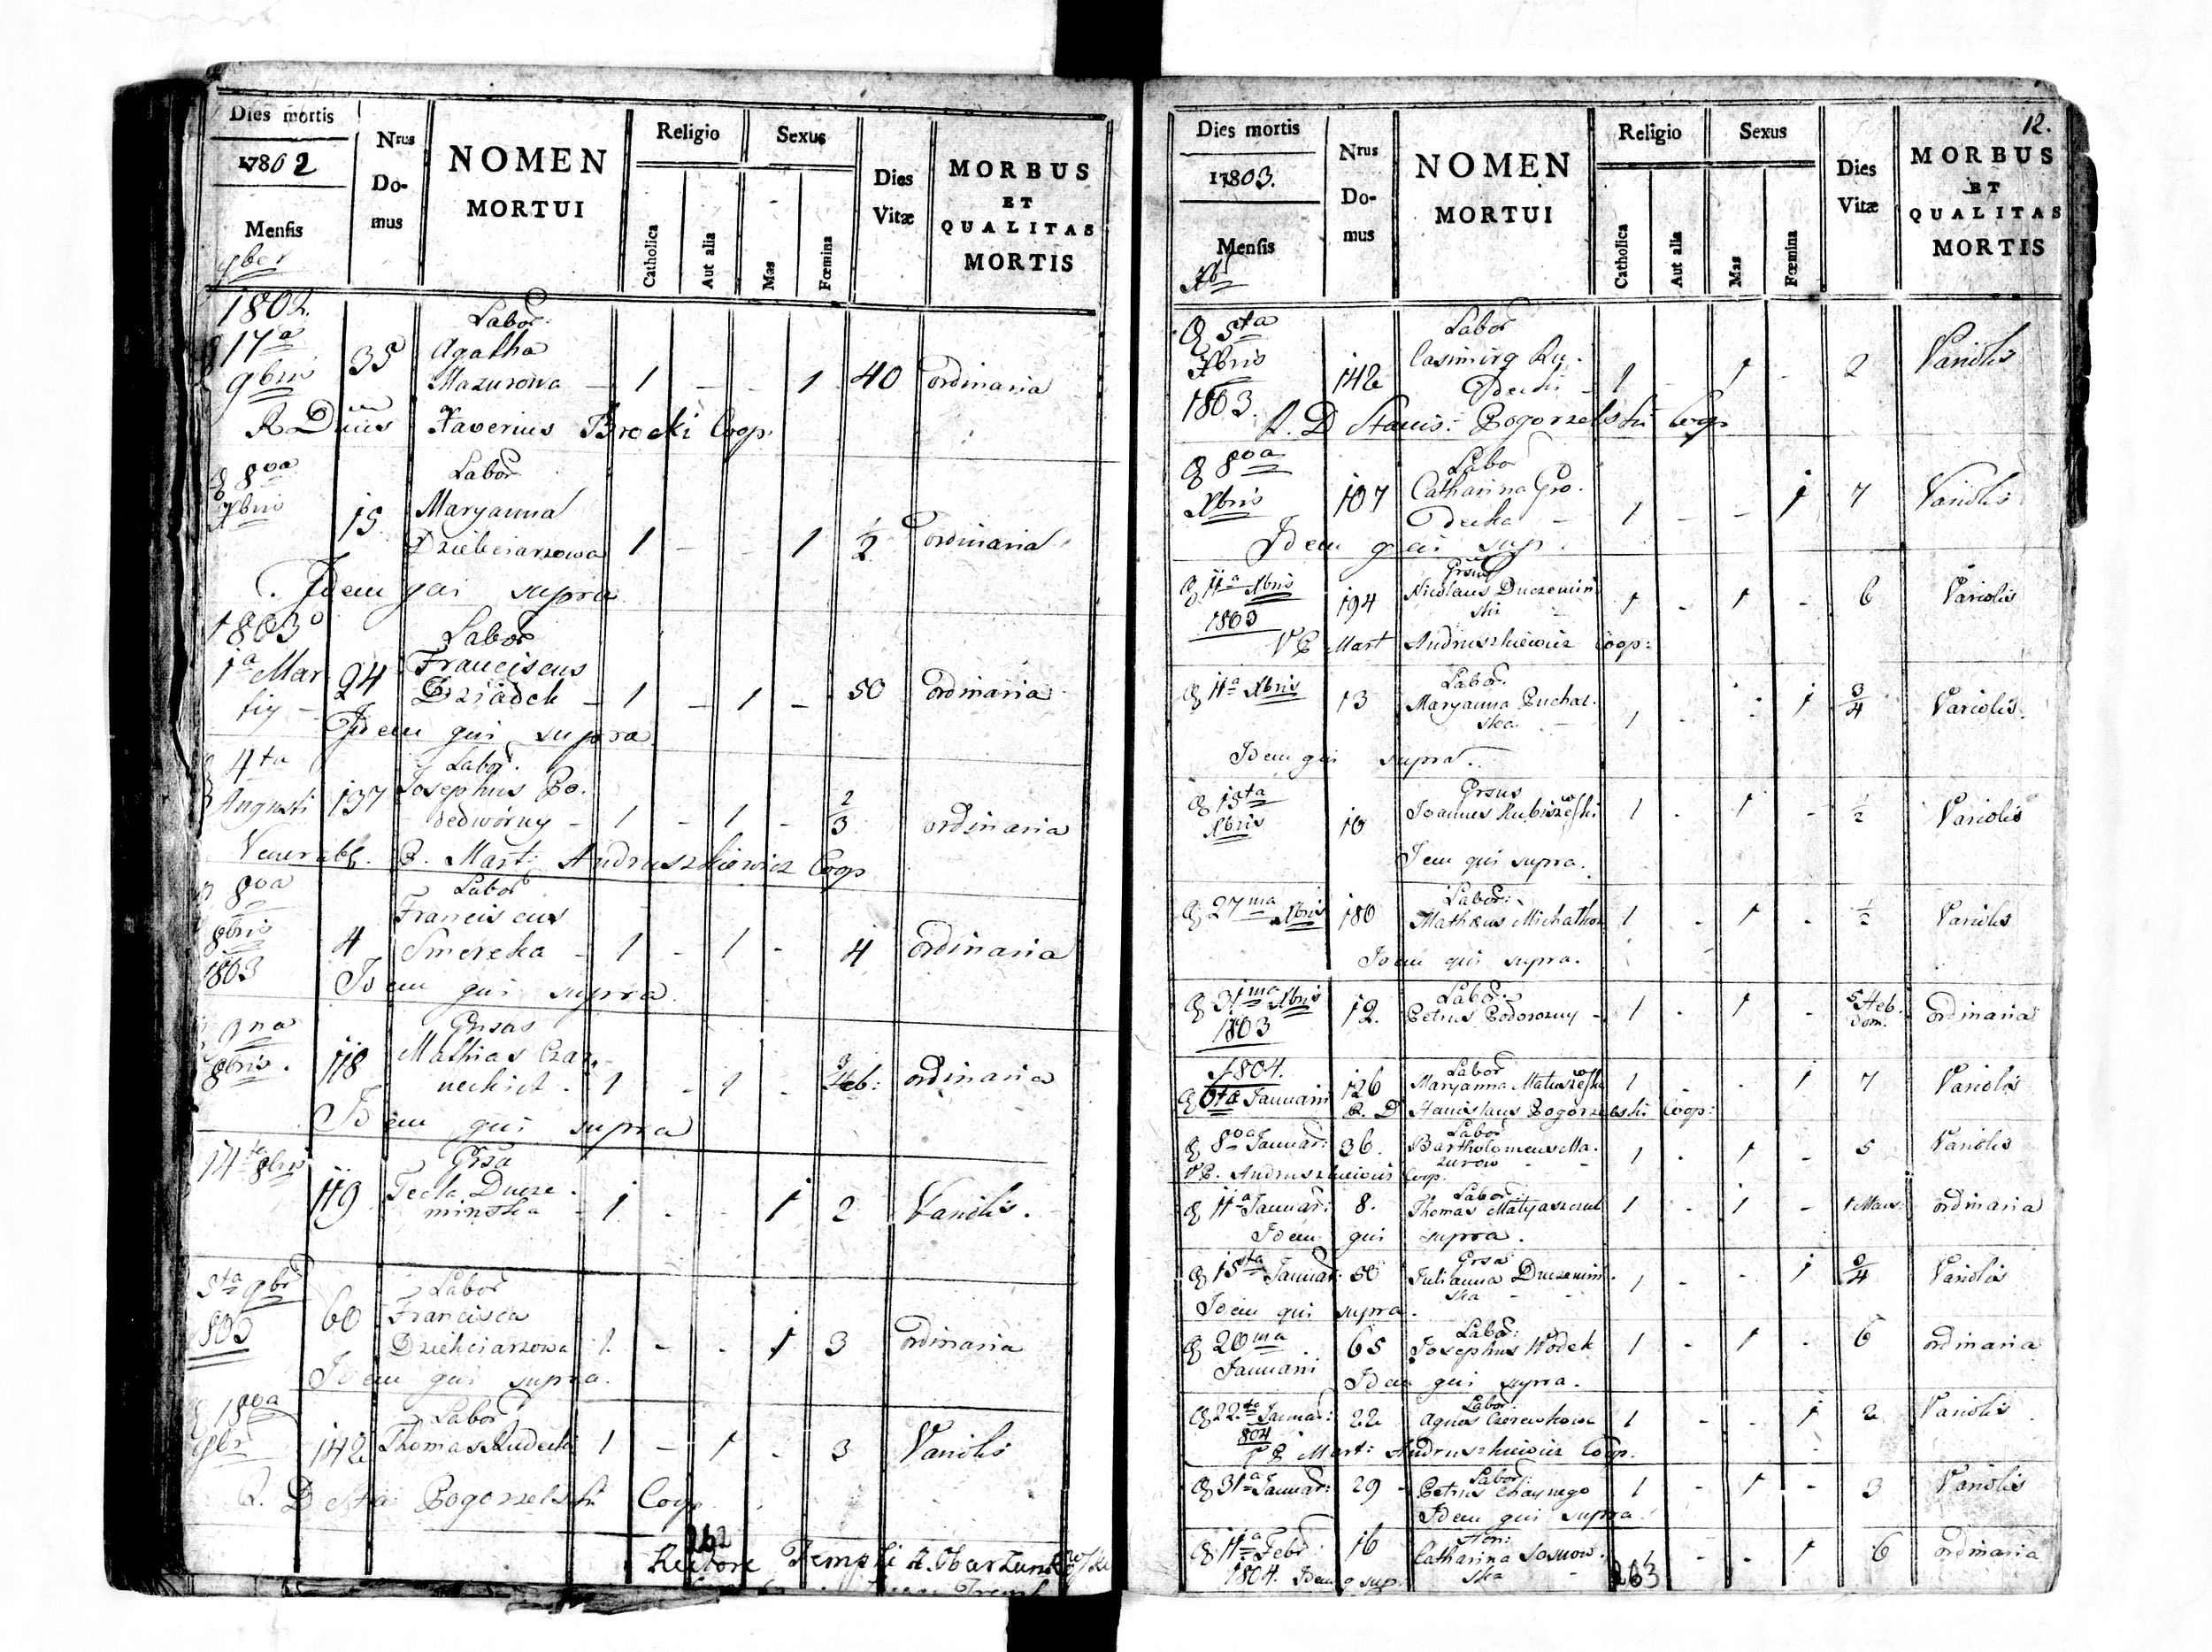 Dies mortis
17802
Mensis
9ber
Nrus
Do-
mus
NOMEN
MORTUI
Religio
Catholica
Aut alia
Sexus
Mas
Fœmina
Dies
Vitæ
MORBUS
ET
QUALITAS
MORTIS
1802.
Labor
17a
9bris
35
Agatha
Mazurowa - 1 - - 1 40 ordinaria
R Dnus Xaverius Brocki Coop:
8va
Xbris
Labor
15
Maryanna
Dziekciarzowa 1 - - 1 1/2 ordinaria
Idem qui supra
1803
Labor
1a Mar
tij -
24
Franciscus
Dziadek - 1 - 1 - 50 ordinaria
Idem qui supra
4ta
Labor.
Augusti 137 Josephus Po.
dedworny - 1 - 1 - 2/3 ordinaria
Venerabl. P. Mart: Andruszkiewicz Coop
8va
8bris
1803
Labor
Franciscus
4 Smereka - 1 - 1 - 4 ordinaria
Idem qui supra
9na
8bris.
118 Mathias Czar
1 - 1 - Heb: ordinaria
Idem qui supra
14ta 8bris
Grsa
119 Tecla Ducze.
minska - 1 - - 1 2 Variolis.
5ta 9br
803
Labor
60 Francisca
Dziekciarzowa 1. - - 1 3 ordinaria
Idem qui supra.
18va
9br
Labor
142 Thomas Rudecki 1 - 1 - 3 Variolis
R. D Sta Pogorzelski Coop
262
Dies mortis
17803.
Mensis
Xb
Nrus
Do-
mus
NOMEN
MORTUI
Religio
Catholica
Aut alia
Sexus
Mas
Fœmina
Dies
Vitæ
12.
MORBUS
ET
QUALITAS
MORTIS
5ta
Xbris
1803.
Labor
142 Casimirg Ru.
decki - 1 - 1 - 2 Variolis
R. D Stanis: Pogorzelski Coop
8va
Xbris
Labor
107 Catharina Gro.
decka - 1 - - 1 7 Variolis
Idem qui sup.
11a Xbris
1803
194 Nicolaus Duczemin
ski 1 - 1 - 6 Variolis
V P Mart Andruszkiewicz Coop:
11a Xbris
Labor.
13 Maryanna Puchal.
ska - 1 - - 1 3/4 Variolis.
Idem qui supra.
15ta
Xbris
Grsus
10 Joannes Kubiszewski 1 - 1 - 1/2 Variolis
Idem qui supra.
27ma Xbris
Labor:
180 Mathæus Michalkow 1 - 1 - 1/2 Variolis
Idem qui supra.
31ma Xbris
1803
Labor:
12. Petrus Podorozny - 1 - 1 - 5 Heb.
Dom. ordinaria
1804.
Labor
6ta Januarii 126 Maryanna Matuszewska 1 - - 1 7 Variolis
R. D Stanislaus Pogorzelski Coop:
8va Januar: 36.
Labor
Bartholomeus Ma.
zurow - 1 - 1 - 5 Variolis
V P. Andruszkiewicz Coop.
11a Januar: 8.
Labor
Thomas Matyaszczuk 1 - 1 - 1 Mens: ordinaria
Idem qui supra.
15ta Januar: 50
Grsa
Julianna Duczemin.
ska - 1 - - 1 3/4 Variolis
Idem qui supra.
20ma
Januarii
Labor:
65 Josephus Wodek 1 - 1 - 6 ordinaria
Idem qui supra.
22da Januar:
804
Labor:
22 Agnes 1 - - 1 2 Variolis
V P Mart: Andruszkiewicz Coop.
31a Januar: 29
Labor:
Petrus 1 - 1 - 3 Variolis
Idem qui supra.
11a Febr
1804.
16 Hon:
Catharina Sosnow.
ska - - 1 6 ordinaria
Idem q sup.
263